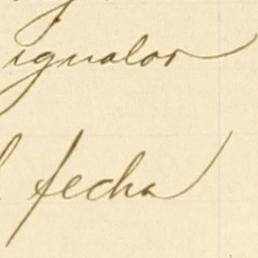 igualar
fecha